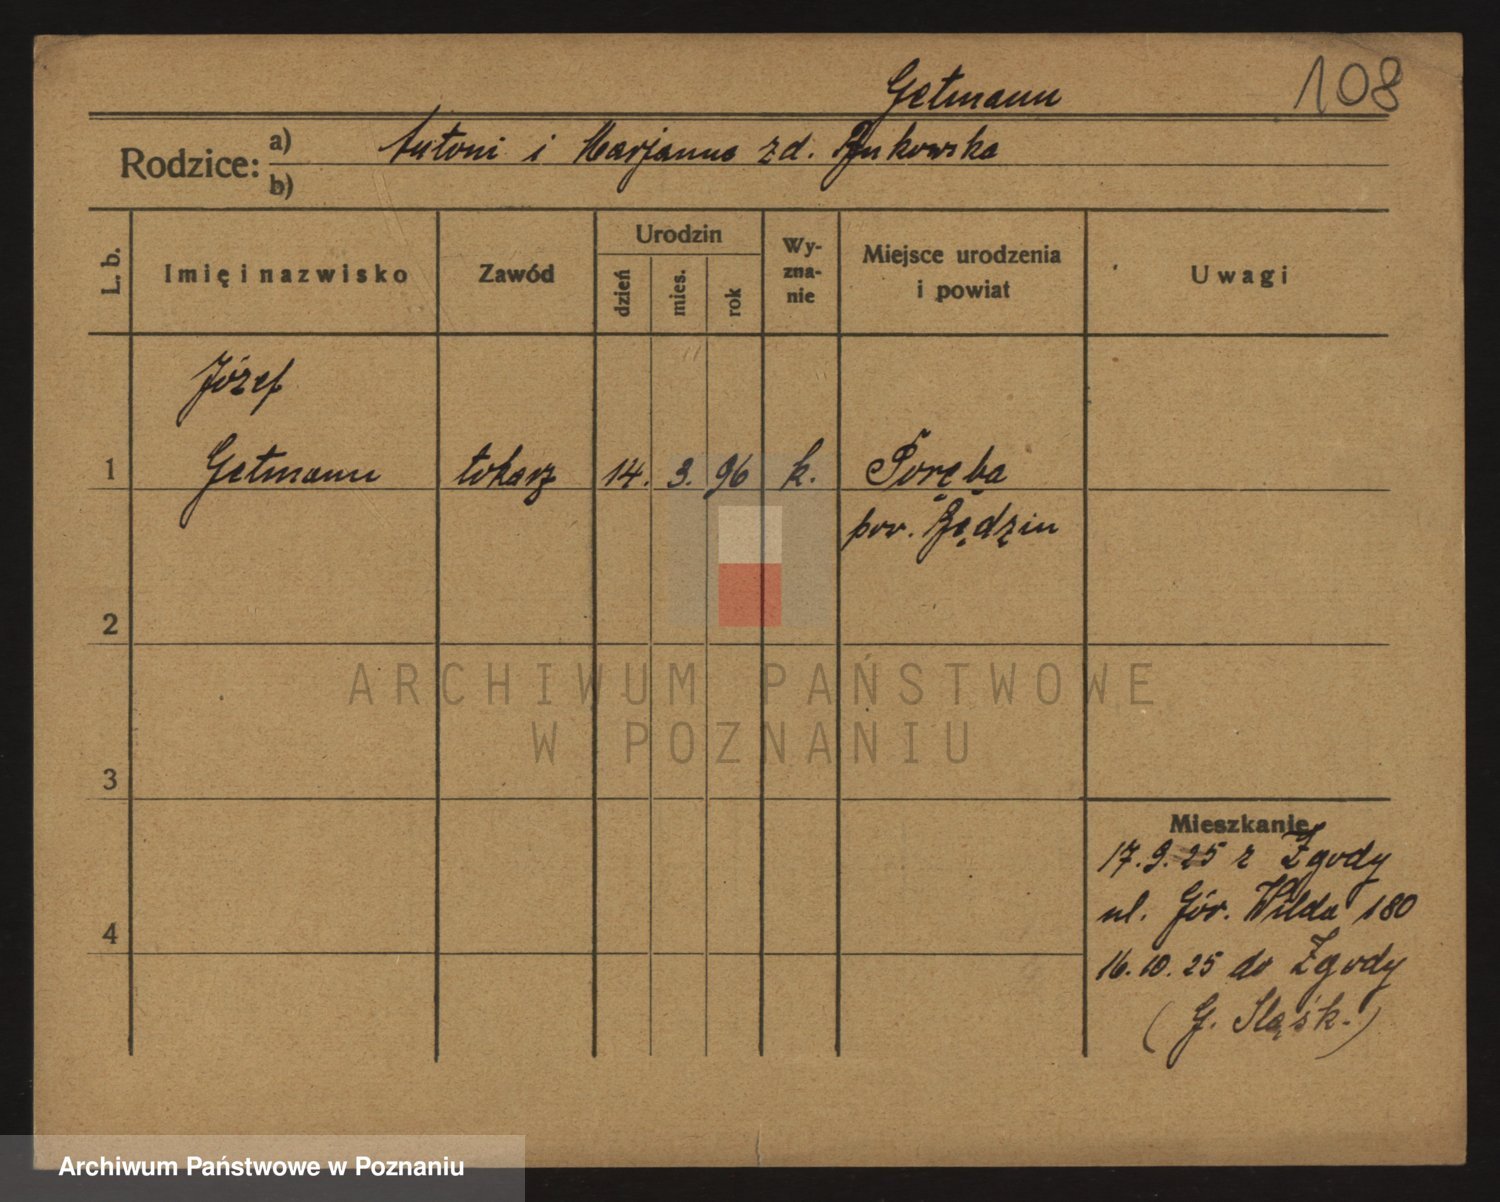 Getmann
108
Rodzice: a) Antoni i Marjanna zd.
b)
L. b.
Imię i nazwisko
Zawód
Urodzin
dzień
mies.
rok
Wy-
zna-
nie
Miejsce urodzenia
i powiat
Uwagi
Józef
1 Getmann tokarz 14. 3. 96 k. Poręba
pow. Będzin
2
3
4
Mieszkanie
17.9.25 z Zgody
ul. Gór. Wilda 180
16.10.25 do Zgody
(G. Śląsk.)
ARCHIWUM PAŃSTWOWE
W POZNANIU
Archiwum Państwowe w Poznaniu